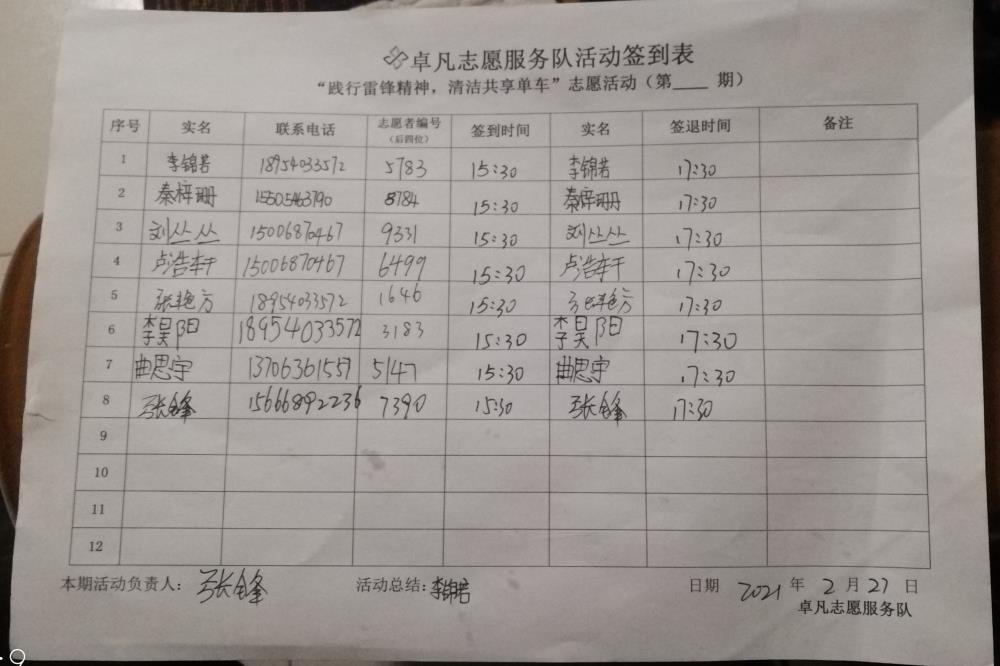 卓凡志愿服务队活动签到表
“践行雷锋精神，清洁共享单车”志愿活动（第____ 期）
序号 实名 联系电话 志愿者编号（后四位） 签到时间 实名 签退时间 备注
1 李锦若 18954033572 5783 15:30 李锦若 17:30
2 秦梓珊 15505463790 8784 15:30 秦梓珊 17:30
3 刘丛丛 15006870467 9331 15:30 刘丛丛 17:30
4 卢浩轩 15006870467 6499 15:30 卢浩轩 17:30
5 张艳方 18954033572 1646 15:30 张艳方 17:30
6 李昊阳 18954033572 3183 15:30 李昊阳 17:30
7 曲思宇 13706361557 5147 15:30 曲思宇 17:30
8 张锋 15666892236 7390 15:30 张锋 17:30
9
10
11
12
本期活动负责人：张锋 活动总结：李锦若 日期 2021 年 2 月 27 日
卓凡志愿服务队